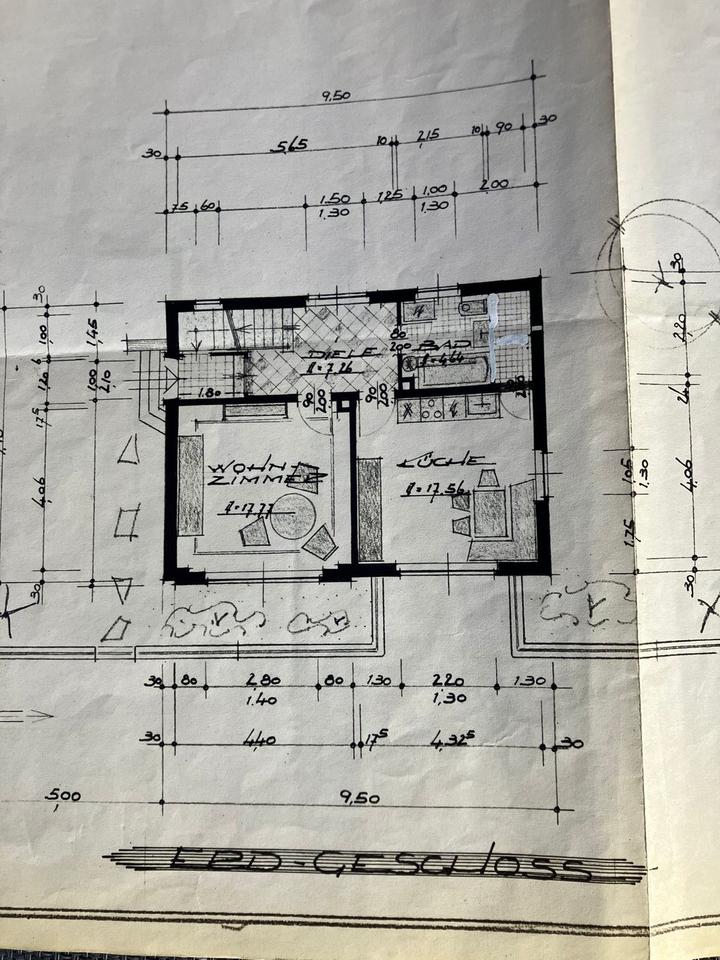 9,50
30 5,65 10 2,15 10 90 30
75 60 1.50 1,25 1.00 2.00
1.30 1.30
30
1,00
1,45
6
1,20
1,00
2,10
17⁵
4,06
30
30
2,20
24
4,06
30
1,05
1,30
1,75
DIELE
7,26
80
200
BAD
4,64
1.80
90
200
90
200
WOHN-
ZIMMER
17,77
KÜCHE
17,56
30 80 2,80 80 1.30 2,20 1.30
1.40 1,30
30 4,40 17⁵ 4,32⁵ 30
5,00 9,50
ERD-GESCHOSS